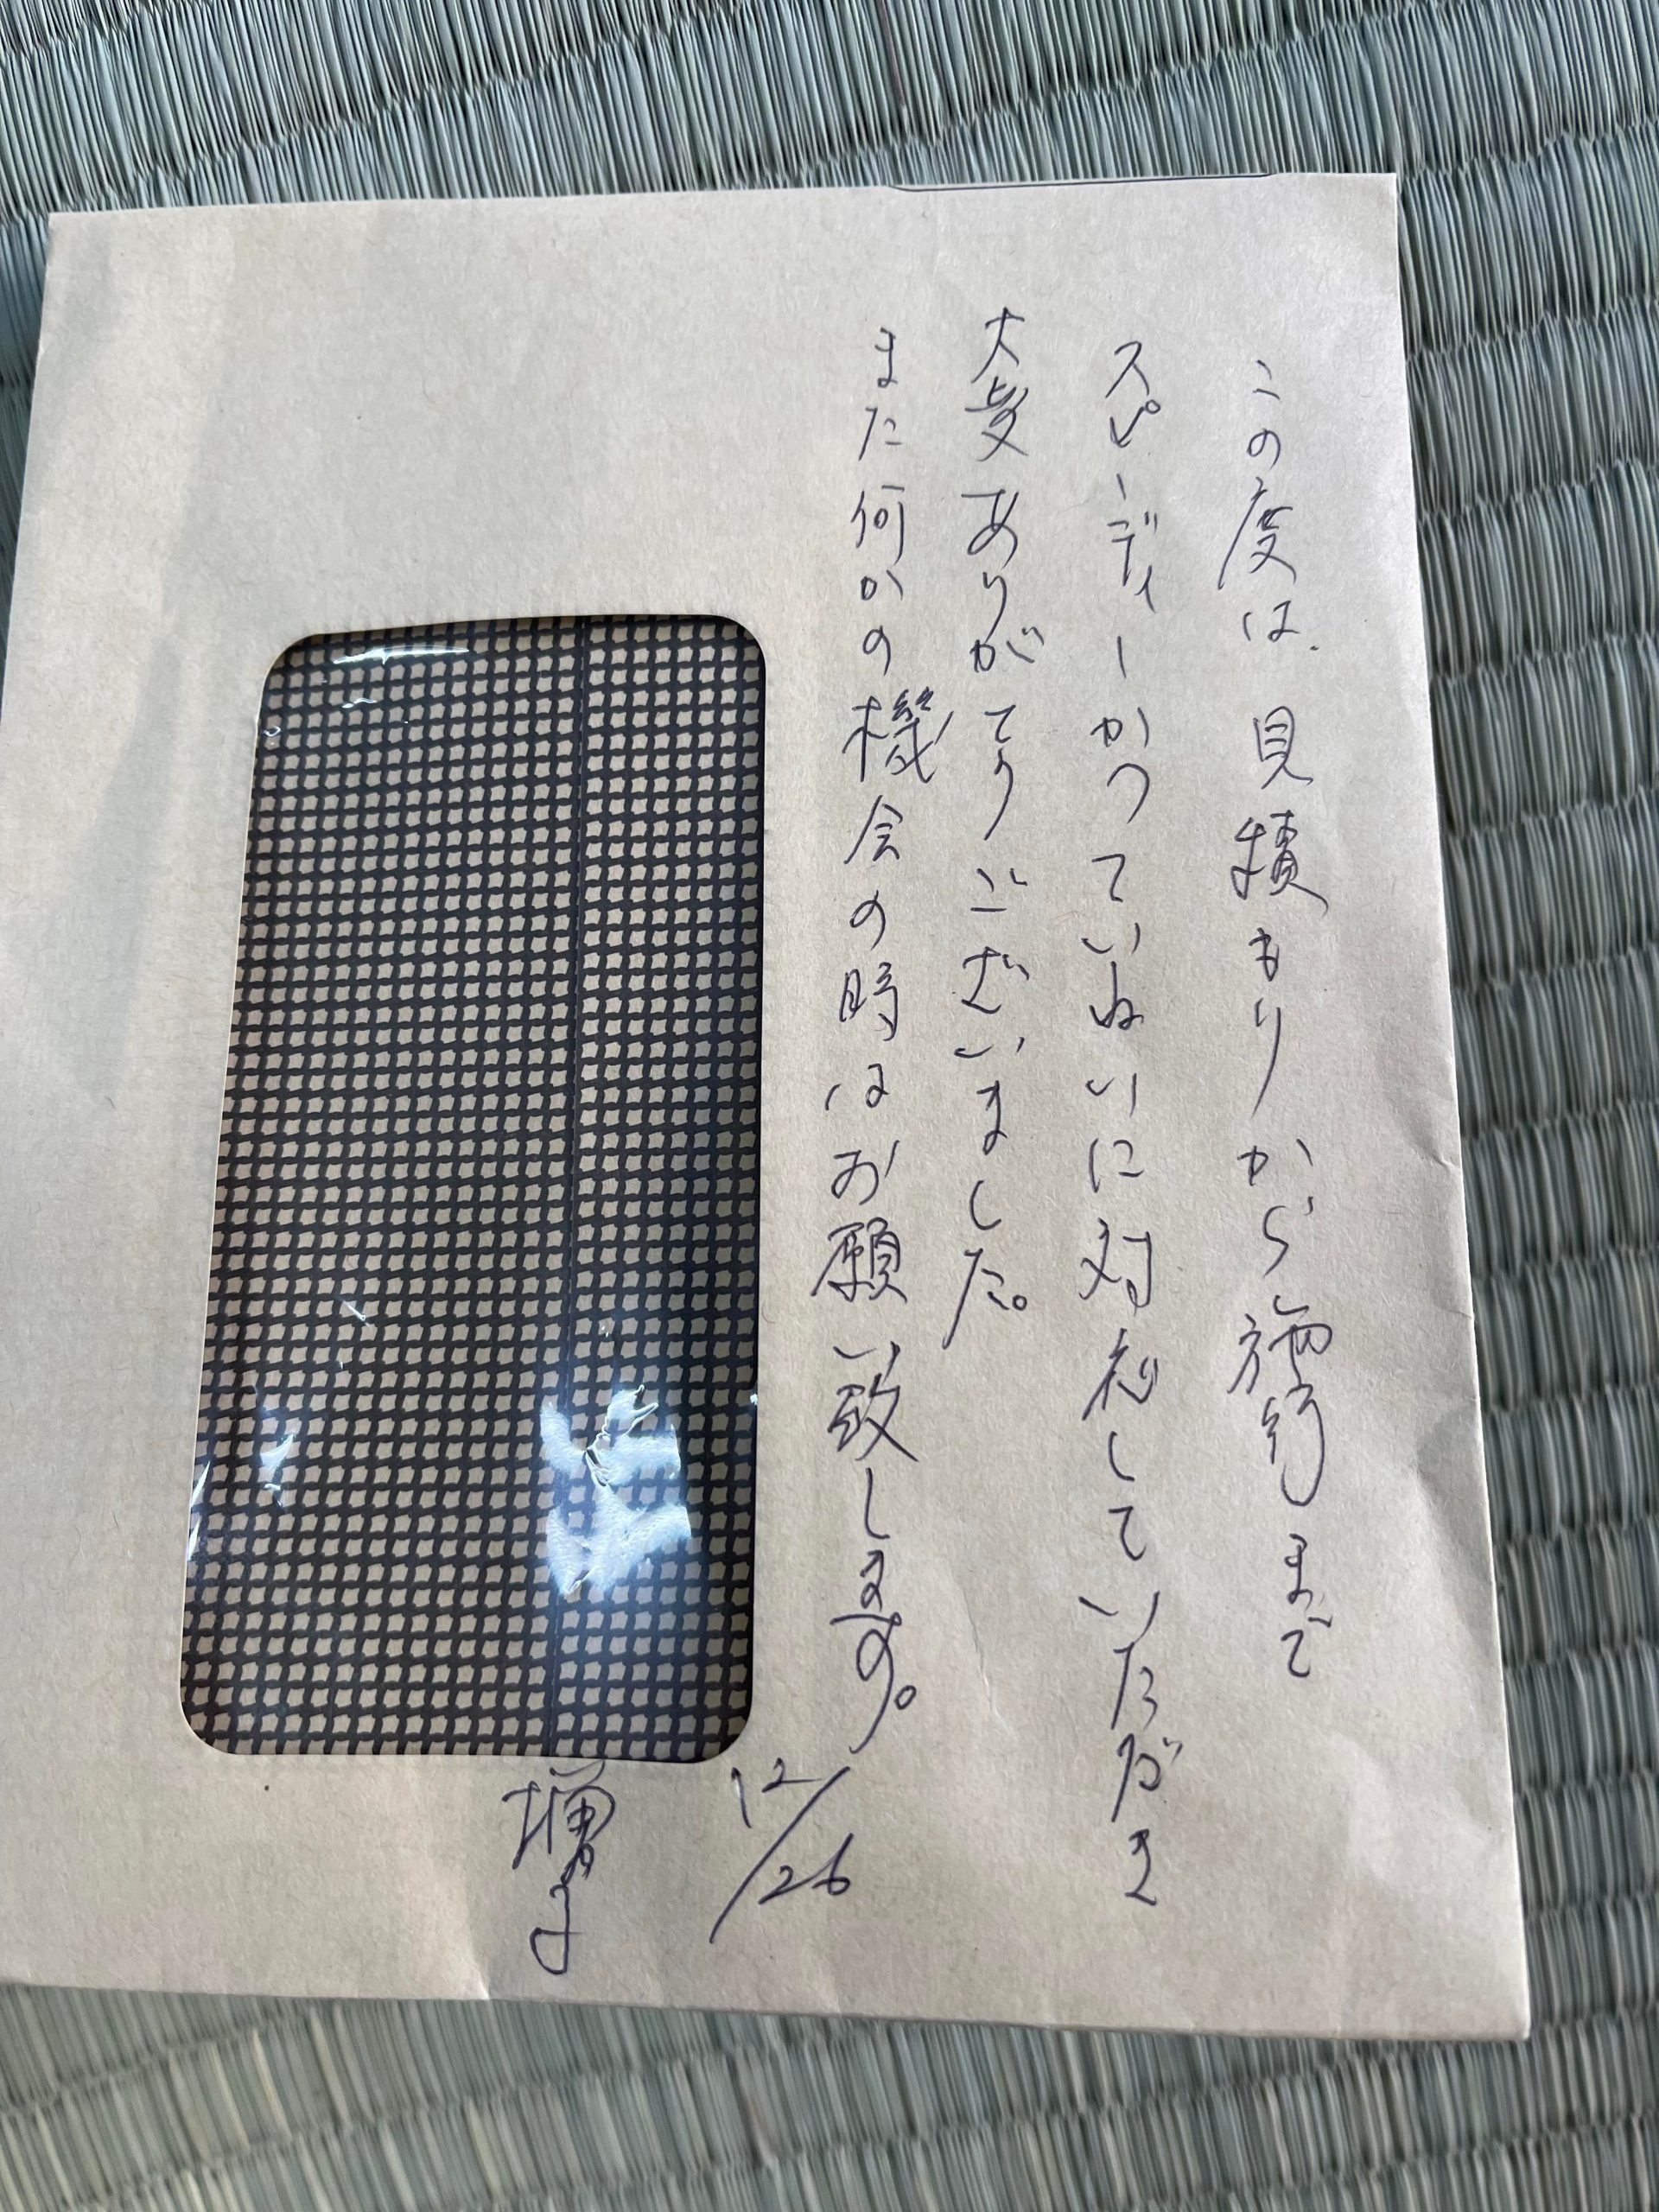 この度は、見積もりから施行まで
スピーディーかつていねいに対応していただき
大変ありがとうございました。
また何かの機会の時はお願い致します。
12/26
増子